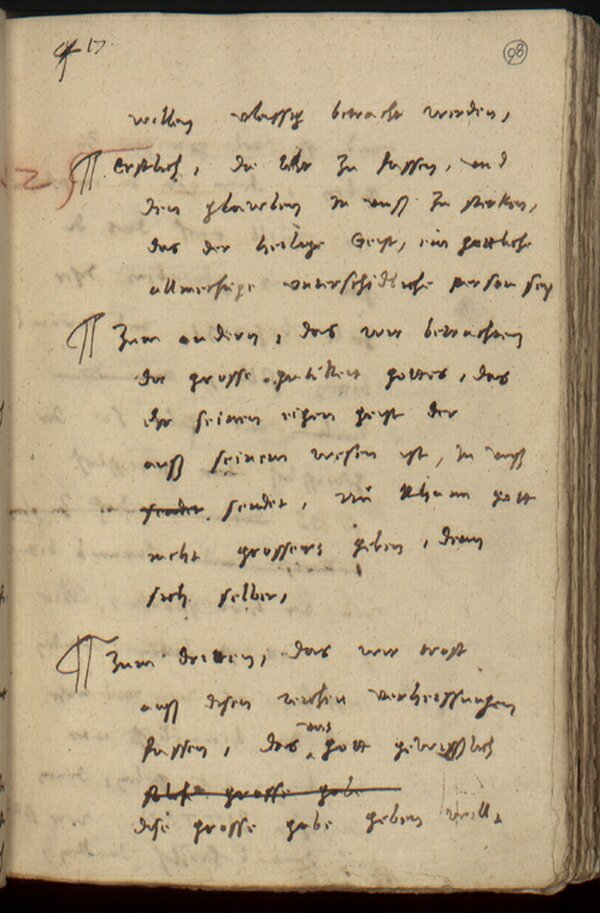 17
98
willen vleissig betracht werden,
¶ Erstlich, die lehr zu fassen, und
den glauben in unß zu sterken,
das der heilige Geist, ein gottliche
allmechtige unterschidliche person sey
¶ Zum andern, das wir betrachten
die grosse gutikeit gottes, das
ehr seinen eigen geist der
auß seinem wesen ist, in unß
sendet, und khann gott
nicht grossers geben, denn
sich selber,
¶ Zum dritten, das wir trost
auß disen reichen verheissungen
fassen, das uns gott gewißlich
solche grosse gabe
dise grosse gabe geben will.